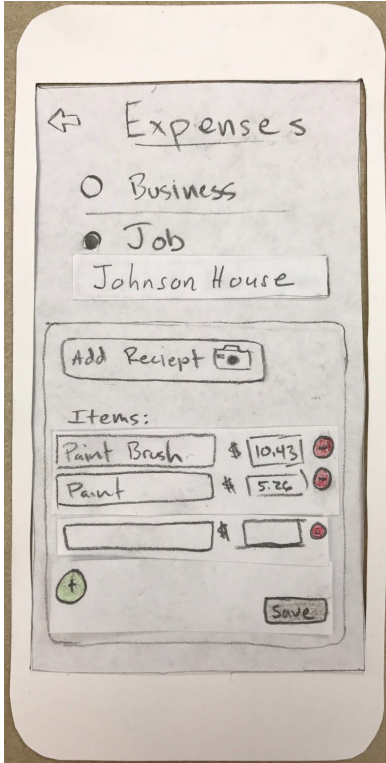 Expenses
Business
Job
Johnson House
Add Reciept
Items:
Paint Brush $ 10.43 -
Paint $ 5.26 -
$
+
Save